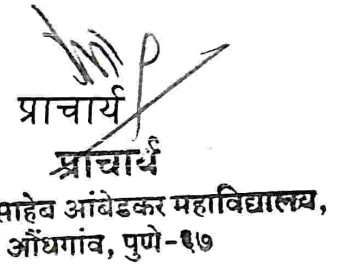 प्राचार्य
प्राचार्य
साहेब आंबेडकर महाविद्यालय,
औंधगांव, पुणे-६७